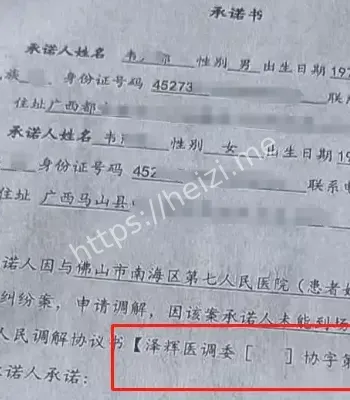 承诺书
承诺人姓名 韦 性别 男 出生日期 197
族 、身份证号码 45273 联系
住址 广西都
承诺人姓名 韦 性别 女 出生日期 19
、身份证号码 452 联系电
住址 广西马山县
https://heizi.me
诺人因与佛山市南海区第七人民医院(患者姓
纠纷案,申请调解,因该案承诺人未能到场
人民调解协议书【泽辉医调委[ ]协字第
承诺人承诺: